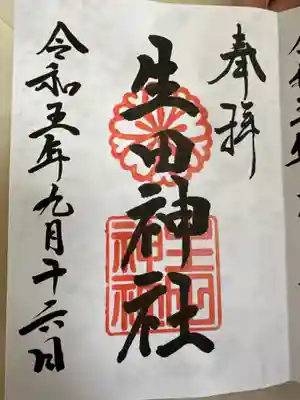 奉拝
生田神社
生田神社
令和五年九月十六日